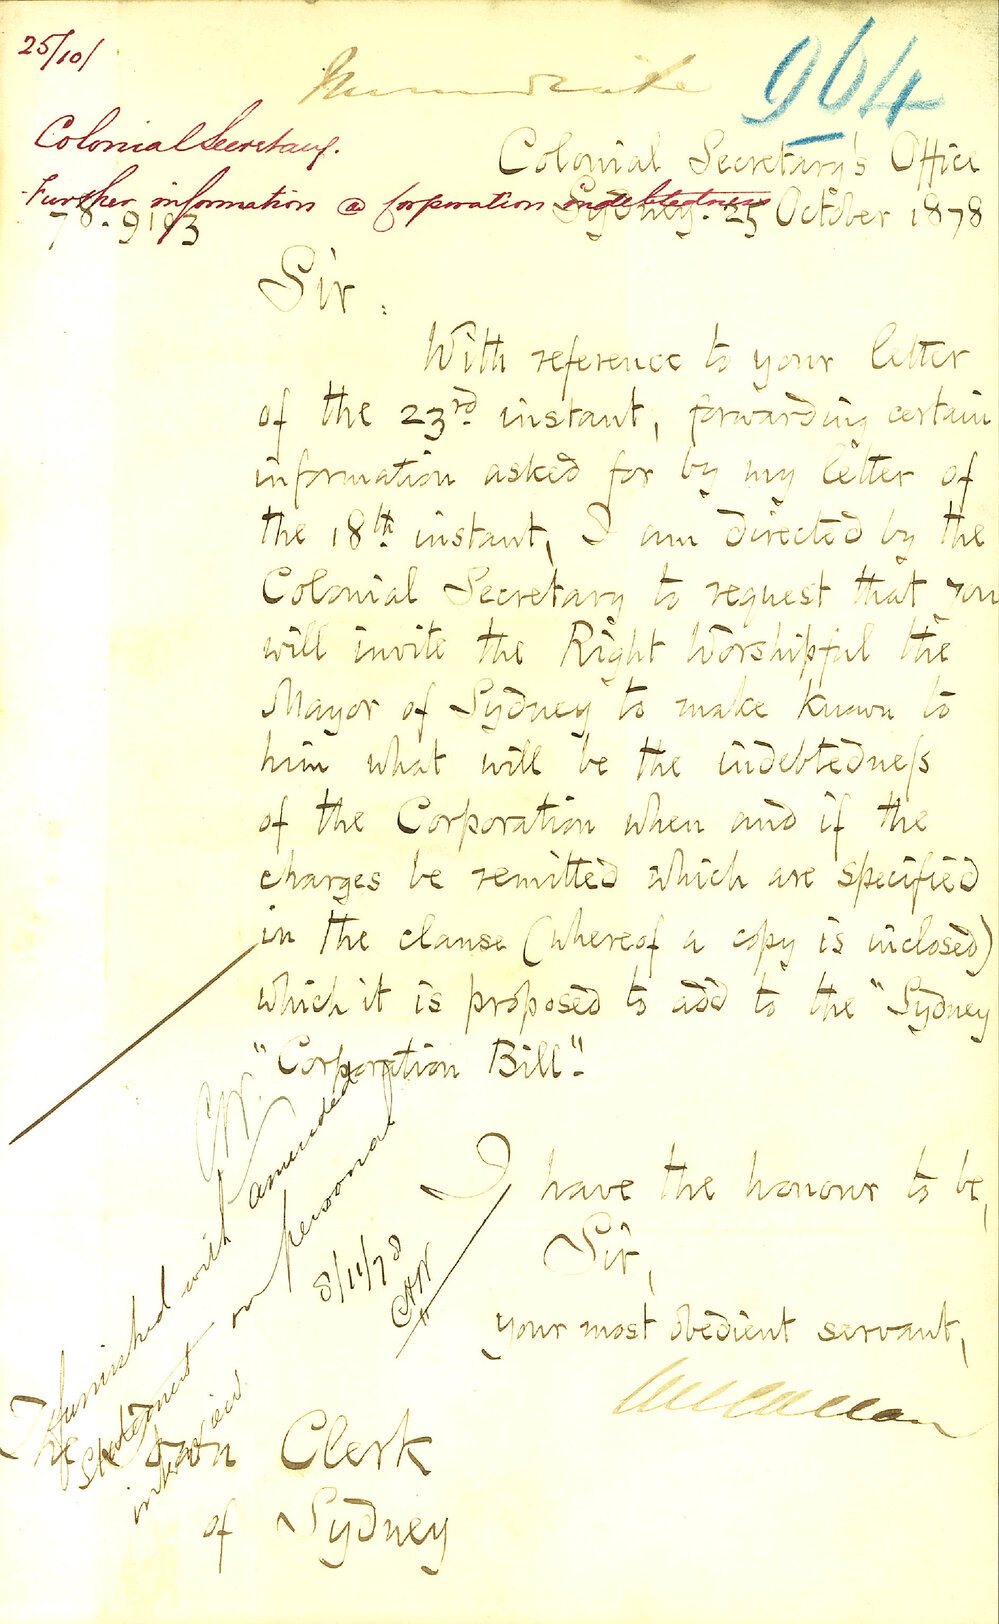 25/10/
Immediate
964
Colonial Secretary.
Colonial Secretary's Office
Further information @ Corporation indebtedness
Sydney. 25 October 1878
78.9193
Sir,
With reference to your letter
of the 23rd instant, forwarding certain
information asked for by my letter of
the 18th instant, I am directed by the
Colonial Secretary to request that you
will invite the Right Worshipful the
Mayor of Sydney to make known to
him what will be the indebtedness
of the Corporation when and if the
charges be remitted which are specified
in the clause (whereof a copy is inclosed)
which it is proposed to add to the "Sydney
"Corporation Bill".
I have the honour to be,
Sir,
your most obedient servant,
The Town Clerk
of Sydney
Furnished with amended
statement on personal
interview
8/11/78